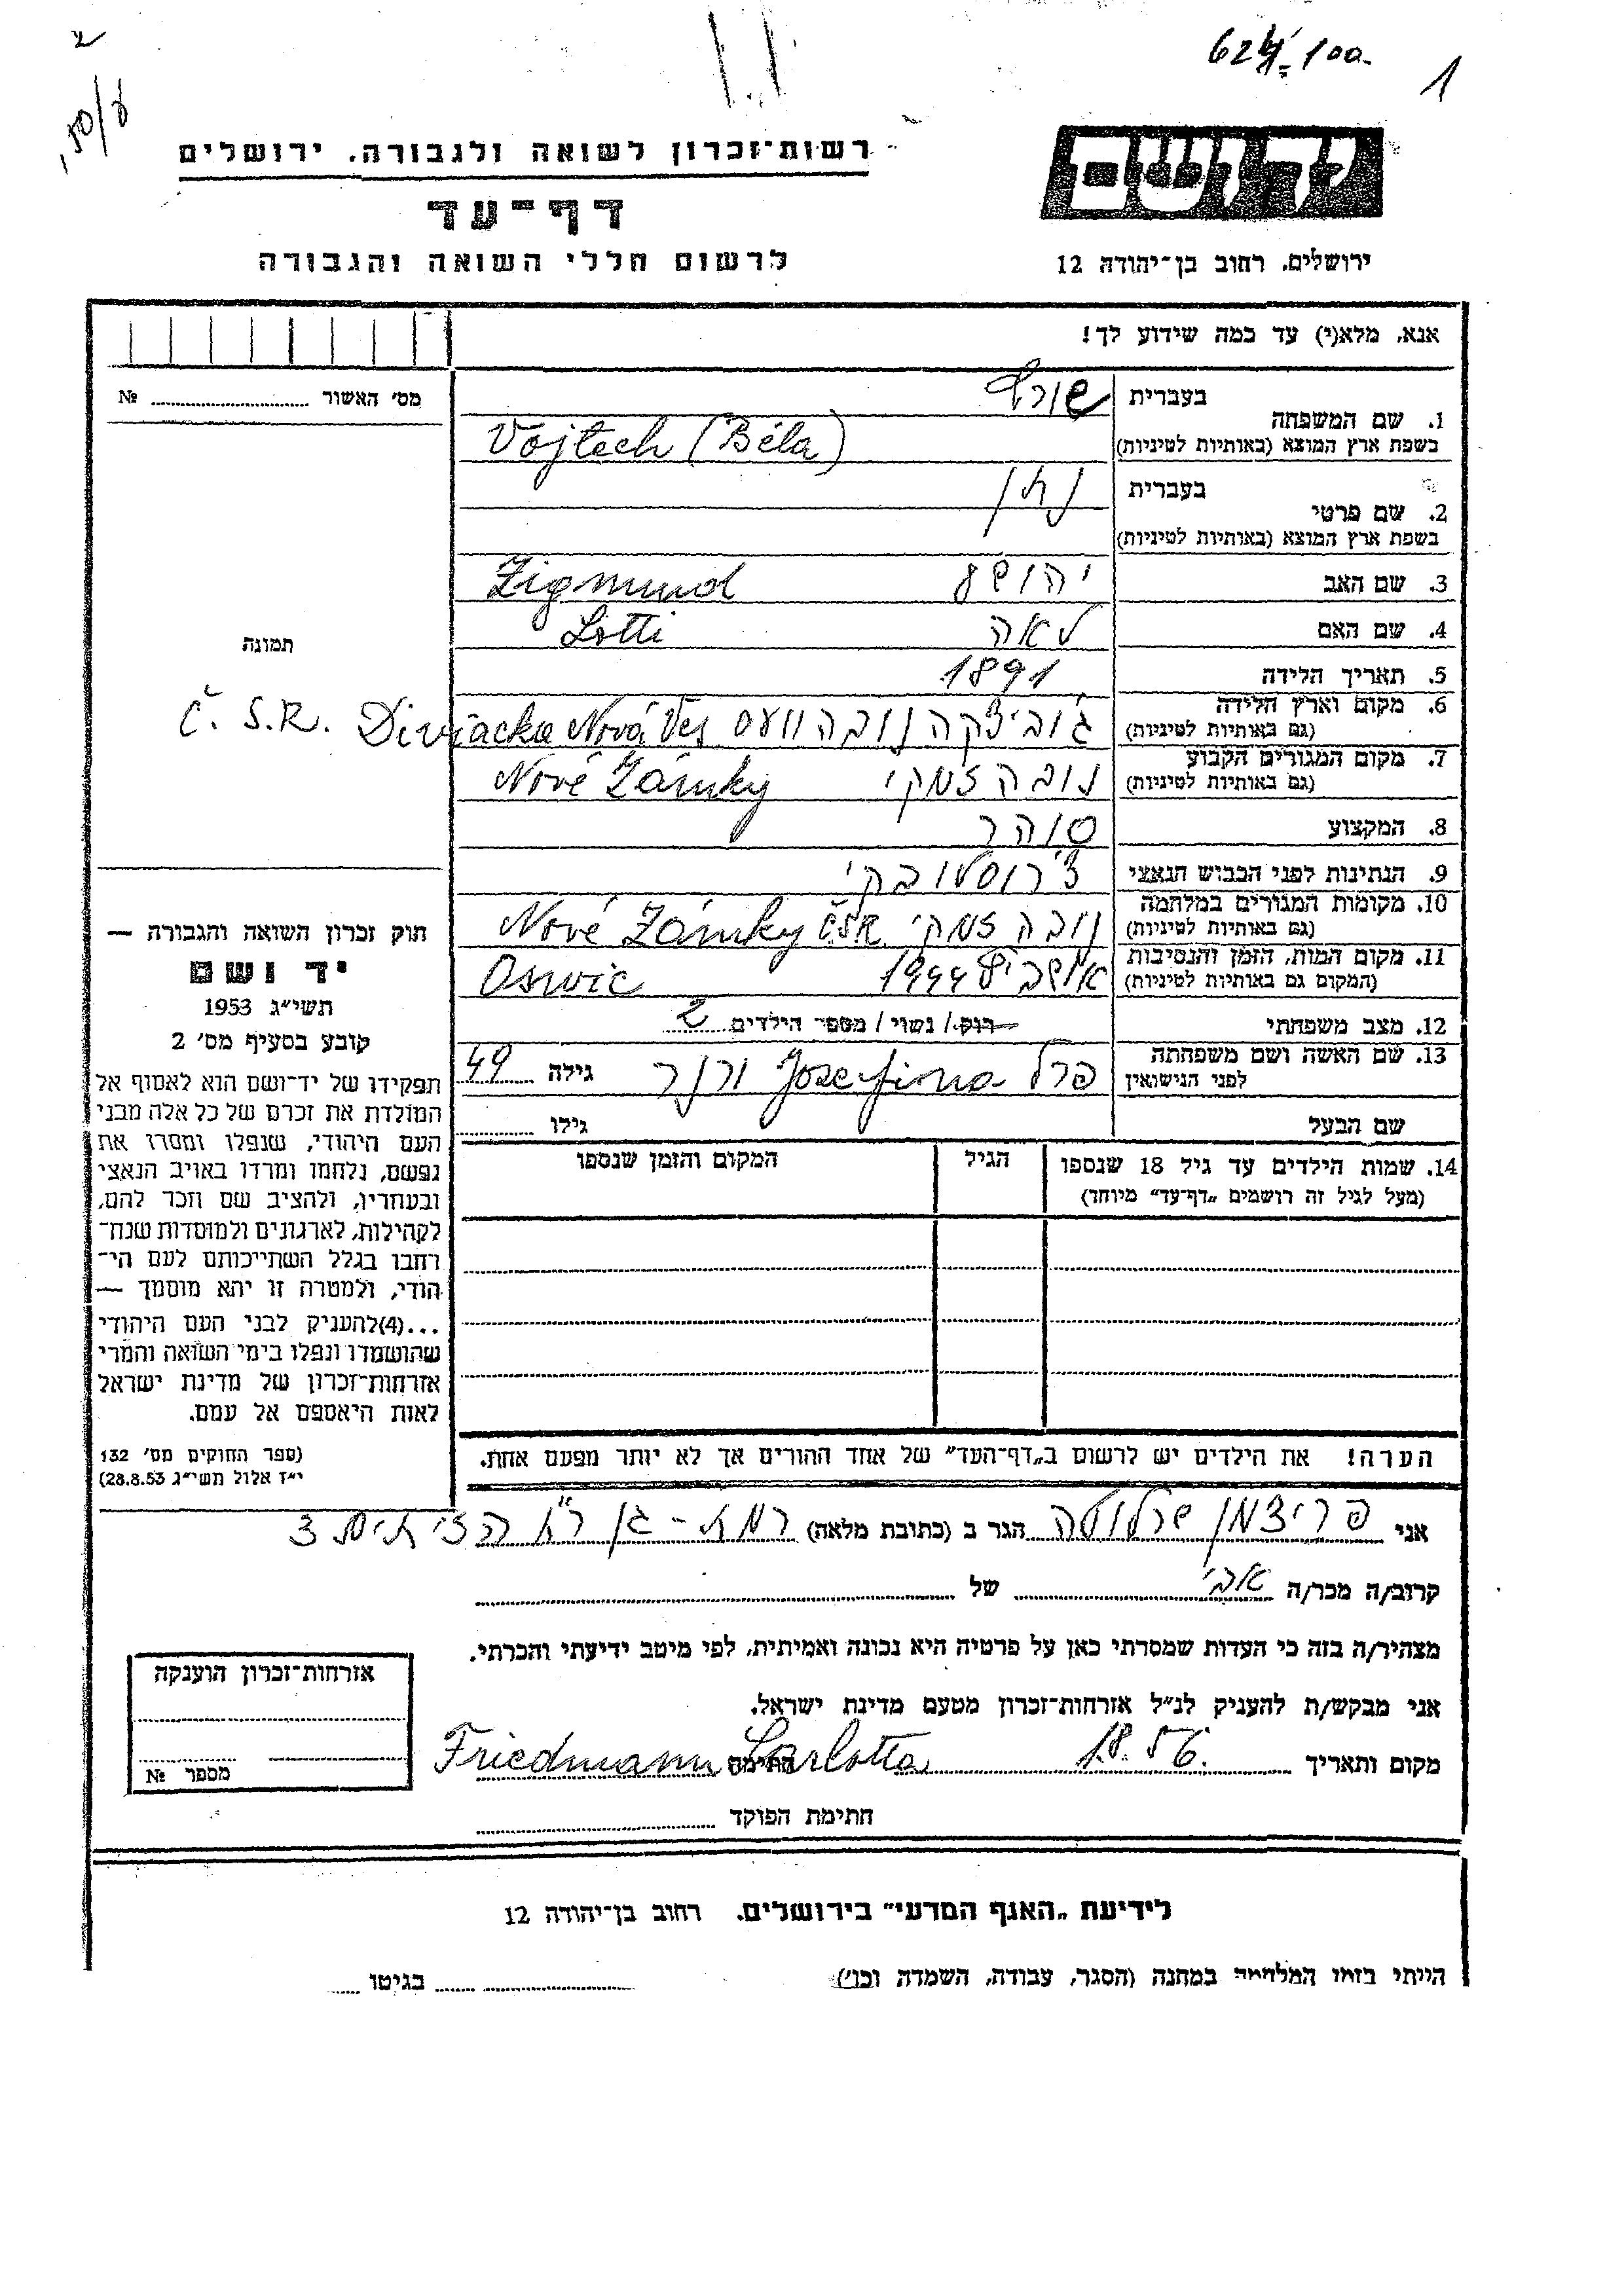 624 100.
1
50/
רשות־זכרון לשואה ולגבורה. ירושלים
יד ושם
דף־עד
לרשום חללי השואה והגבורה
ירושלים, רחוב בן־יהודה 12
אנא, מלא(י) עד כמה שידוע לך!
מס׳ האשור № 
1. שם המשפחה
בעברית
בשפת ארץ המוצא (באותיות לטיניות) Vojtech (Béla)
2. שם פרטי
בעברית נתן
בשפת ארץ המוצא (באותיות לטיניות)
3. שם האב יהושע Zigmund
4. שם האם לאה Lotti
5. תאריך הלידה 1891
6. מקום וארץ הלידה
(גם באותיות לטיניות) נובה וועס Diviacka Nová Ves Č. S. R.
7. מקום המגורים הקבוע
(גם באותיות לטיניות) נובה זמקי Nové Zámky
8. המקצוע סוהר
9. הנתינות לפני הכבוש הנאצי
10. מקומות המגורים במלחמה
(גם באותיות לטיניות) נובה זמקי Nové Zámky ČSR
11. מקום המות, הזמן והנסיבות
(המקום גם באותיות לטיניות) 1944 Oswic
12. מצב משפחתי רוק / נשוי / מספר הילדים 2
13. שם האשה ושם משפחתה
לפני הנישואין פרל Josefina ורנר גילה 49
שם הבעל גילו
14. שמות הילדים עד גיל 18 שנספו
(מעל לגיל זה רושמים „דף־עד״ מיוחד)
הגיל
המקום והזמן שנספו
תמונה
חוק זכרון השואה והגבורה —
יד ושם
תשי״ג 1953
קובע בסעיף מס׳ 2
תפקידו של יד־ושם הוא לאסוף אל
המולדת את זכרם של כל אלה מבני
העם היהודי, שנפלו ומסרו את
נפשם, נלחמו ומרדו באויב הנאצי
ובעוזריו, ולהציב שם וזכר להם,
לקהילות, לארגונים ולמוסדות שנח־
רבו בגלל השתייכותם לעם הי־
הודי, ולמטרה זו יהא מוסמך —
...(4)להעניק לבני העם היהודי
שהושמדו ונפלו בימי השואה והמרי
אזרחות־זכרון של מדינת ישראל
לאות היאספם אל עמם.
(ספר החוקים מס׳ 132
י״ז אלול תשי״ג 28.8.53)
הערה! את הילדים יש לרשום ב„דף־העד״ של אחד ההורים אך לא יותר מפעם אחת.
אני פרידמן שרלוטה הגר ב (כתובת מלאה) רמת-גן
קרוב/ה מכר/ה אבי של
מצהיר/ה בזה כי העדות שמסרתי כאן על פרטיה היא נכונה ואמיתית, לפי מיטב ידיעתי והכרתי.
אני מבקש/ת להעניק לנ״ל אזרחות־זכרון מטעם מדינת ישראל.
מקום ותאריך 1.8.56. חתימה Friedmann Sarlotta
חתימת הפוקד
אזרחות־זכרון הוענקה
מספר №
לידיעת „האגף המדעי״ בירושלים. רחוב בן־יהודה 12
הייתי בזמן המלחמה במחנה (הסגר, עבודה, השמדה וכו׳) בגיטו